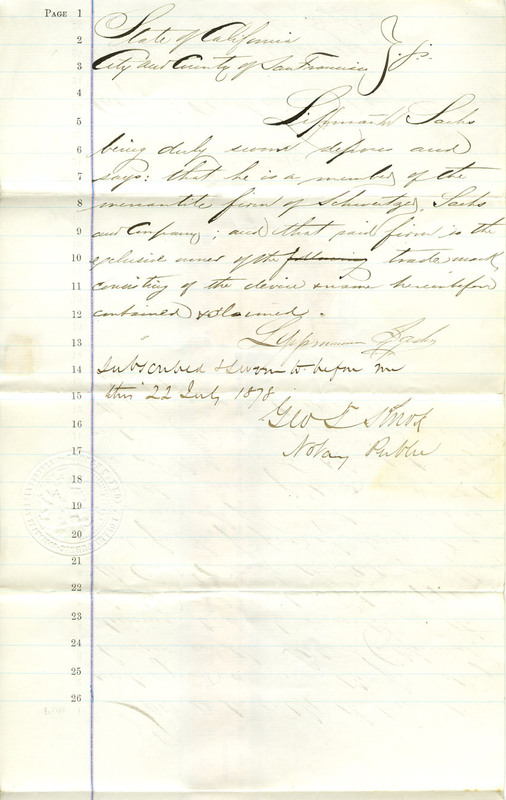 PAGE 1
2 State of California
3 City and County of San Francisco } ss.
4
5 Lippman Sachs
6 being duly sworn deposes and
7 says: that he is a member of the
8 mercantile firm of Schweitzer, Sachs
9 and Company; and that said firm is the
10 exclusive owner of the following trade mark
11 consisting of the device & name hereinbefore
12 contained & claimed.
13 Lippman Sachs
14 Subscribed & Sworn to before me
15 this 22 July 1878
16 Geo T Knox
17 Notary Public
18
19
20
21
22
23
24
25
26